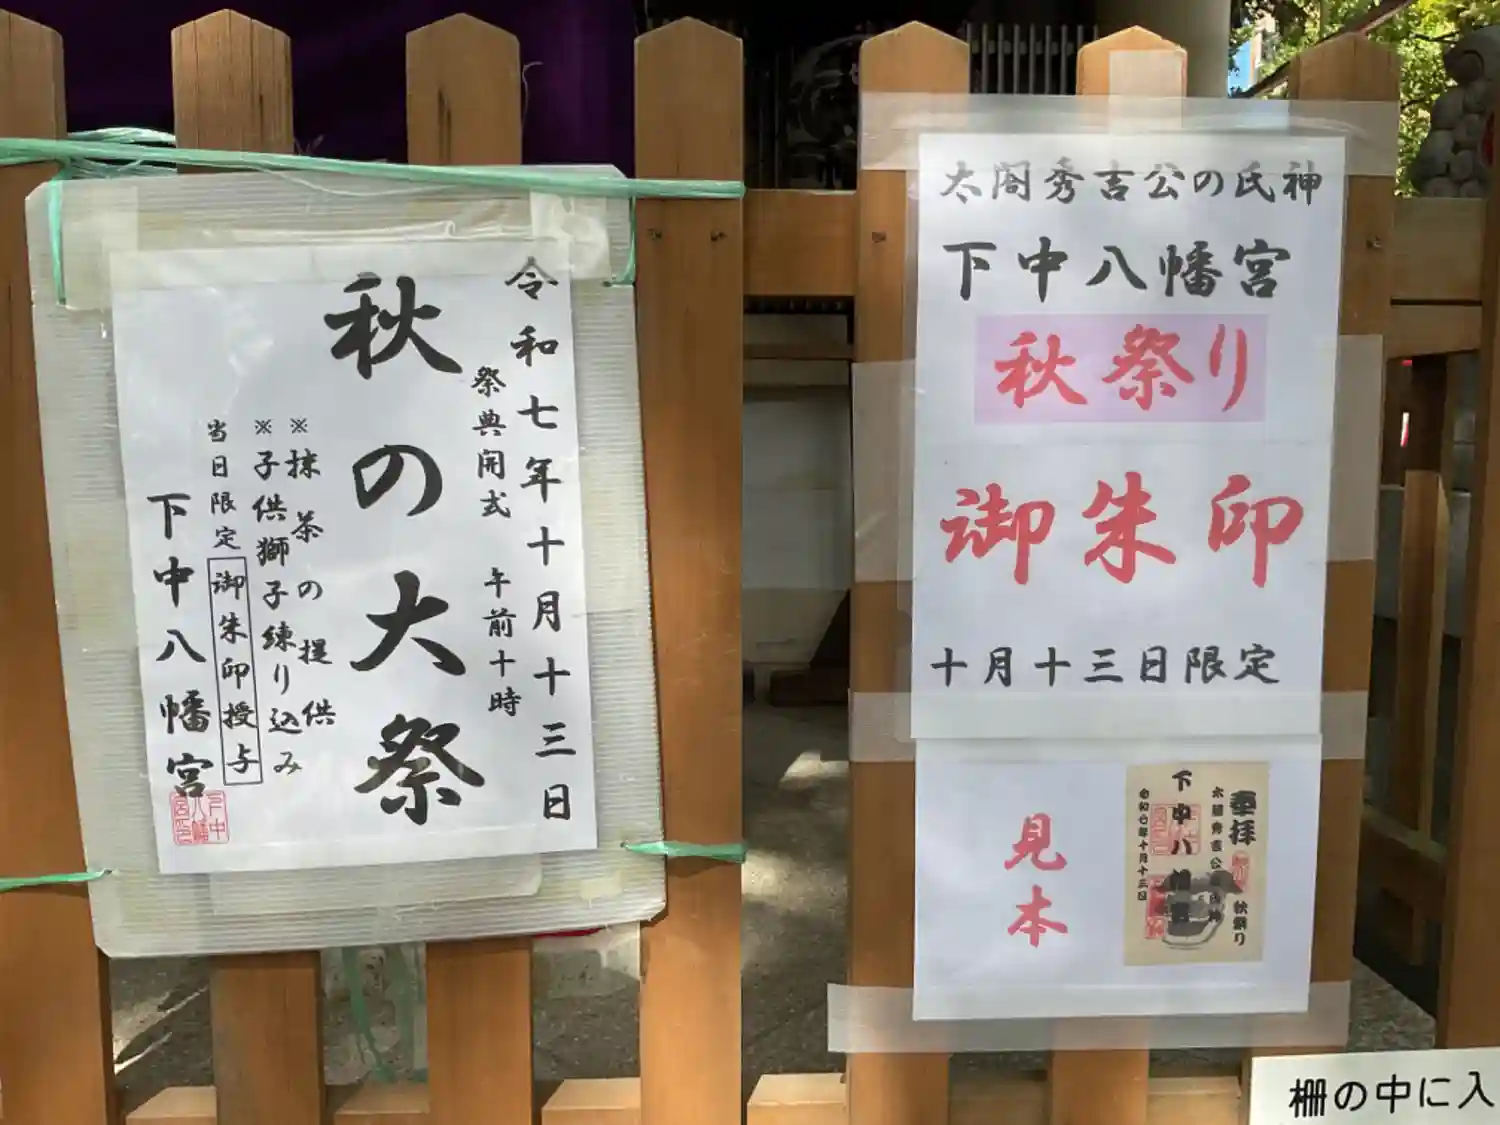 令和七年十月十三日
祭典開式 午前十時
秋の大祭
※抹茶の提供
※子供獅子練り込み
当日限定 御朱印授与
下中八幡宮
太閤秀吉公の氏神
下中八幡宮
秋祭り
御朱印
十月十三日限定
見本
奉拝
秋祭り
太閤秀吉公
下中八
令和七年十月十三日
柵の中に入